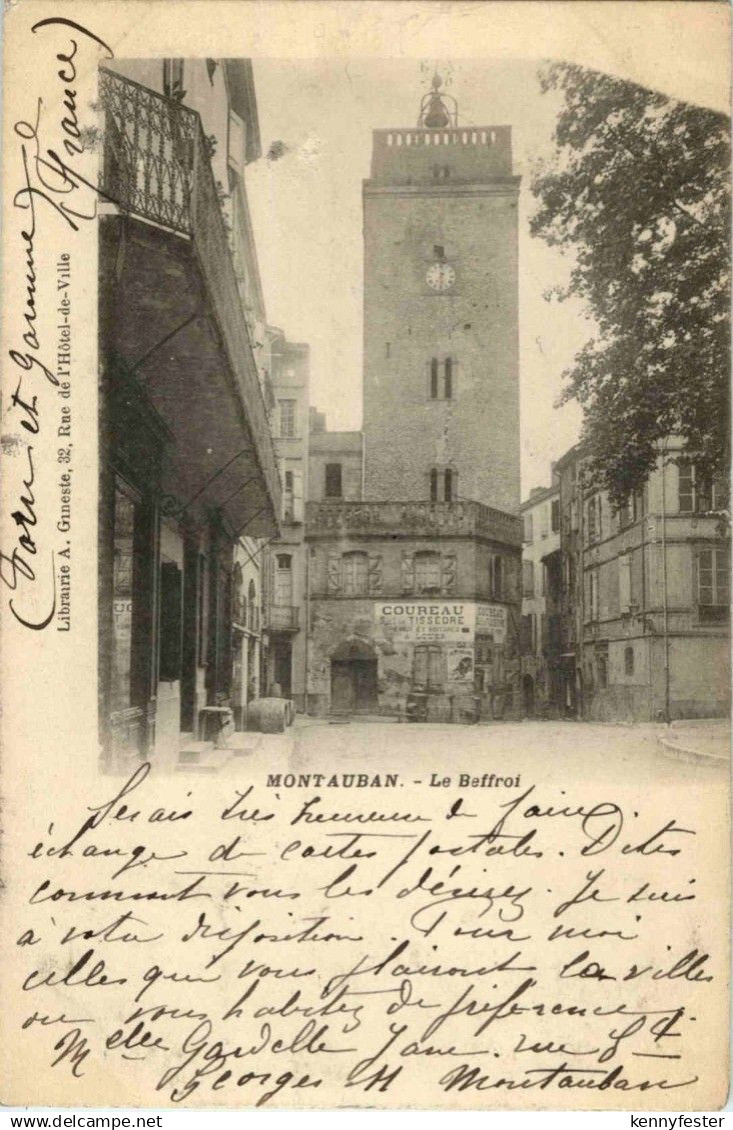 Tarn et Garonne (France)
Librairie A. Gineste, 32, Rue de l'Hôtel-de-Ville
COUREAU
TISSÈDRE
MONTAUBAN. - Le Beffroi
Serais très heureuse de faire
échange de cartes postales. Dites
comment vous les désirez. Je suis
à votre disposition. Pour moi
celles que vous plairont la ville
ou vous habitez de préférence.
Melle Gardelle Jane. rue St
Georges Montauban
kennyfester